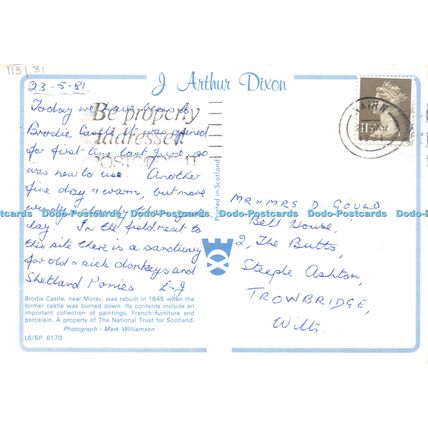 113 81
J Arthur Dixon
23-5-81.
Today we have been to
Be properly
Brodie Castle it was opened
addressed
for first time last June, so
was new to us. Another
fine day & warm, but more
day. In the field next to
this site there is a sanctuary
for old & sick donkeys and
Shetland Ponies L-J
NAIRN
Printed in Scotland
MR & MRS D GOULD
Bell House,
Dodo-Postcards Dodo-Postcards Dodo-Postcards Dodo-Postcards Dodo-Postcards
2, The Butts,
Steeple Ashton,
TROWBRIDGE,
Wilts.
Brodie Castle, near Moray, was rebuilt in 1645 when the
former castle was burned down. Its contents include an
important collection of paintings, French furniture and
porcelain. A property of The National Trust for Scotland.
Photograph - Mark Williamson
L6/SP. 6170